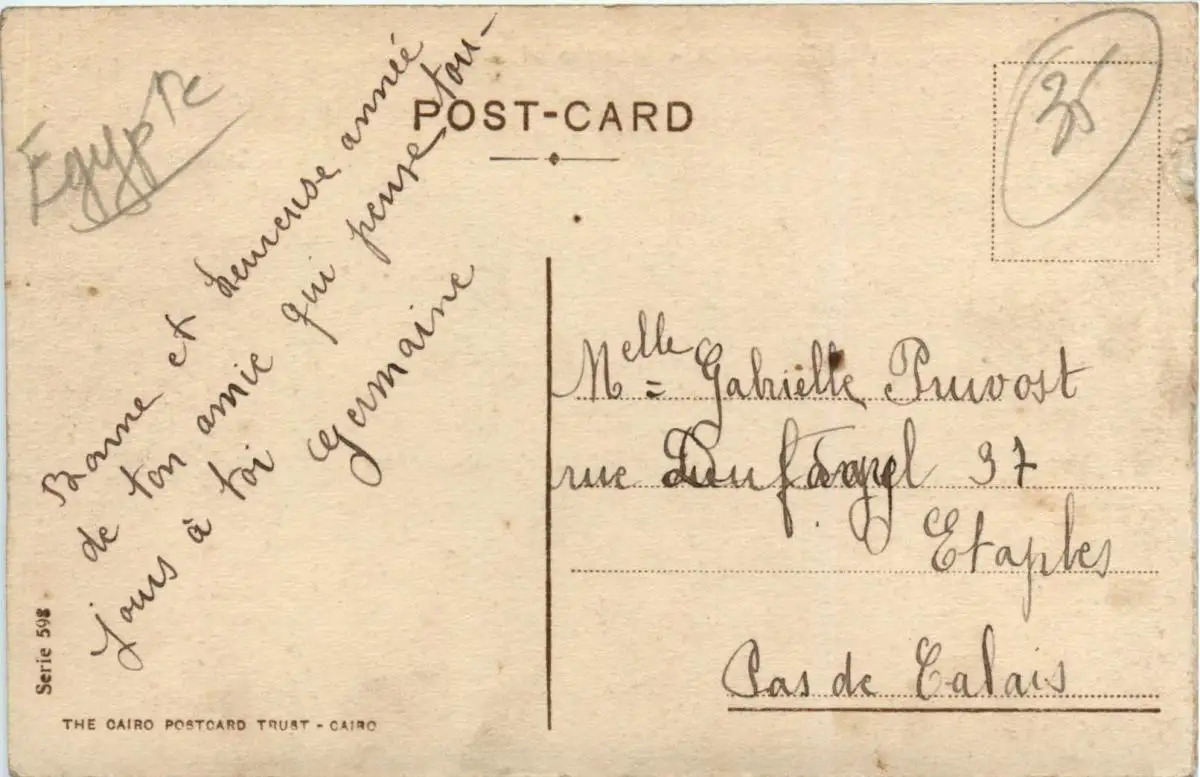 Egypte
35
POST-CARD
Bonne et heureuse année
de ton amie qui pense tou-
jours à toi
Germaine
Melle = Gabrielle Pruvost
rue 37
Etaples
Pas de Calais
Serie 598
THE CAIRO POSTCARD TRUST - CAIRO